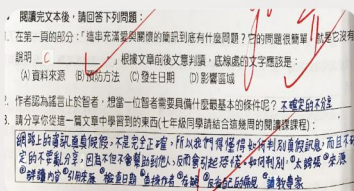 閱讀完文本後，請回答下列問題：
1. 在第一頁的部分：「這串充滿愛與關懷的簡訊到底有什麼問題？它的問題很簡單，就是它沒有
說明 C 」根據文章前後文意判讀，底線處的文字應該是：
(A) 資料來源 (B) 預防方法 (C) 發生日期 (D) 影響區域
2. 作者認為謠言止於智者，想當一位智者需要具備什麼最基本的條件呢？不確定的不分享
3. 請分享你從這一篇文章中學習到的東西(七年級同學請結合這幾周的閱讀課課程)：
網路上的資訊無真假假，不是完全正確，所以我們得懂得如何判別真假訊息，而且不確
定的不要亂分享，因為不但不會幫助到他人，反而會引起恐慌。如何判別：①太誇張 ②來源
③解讀內容 ④引用來源 檢查日期